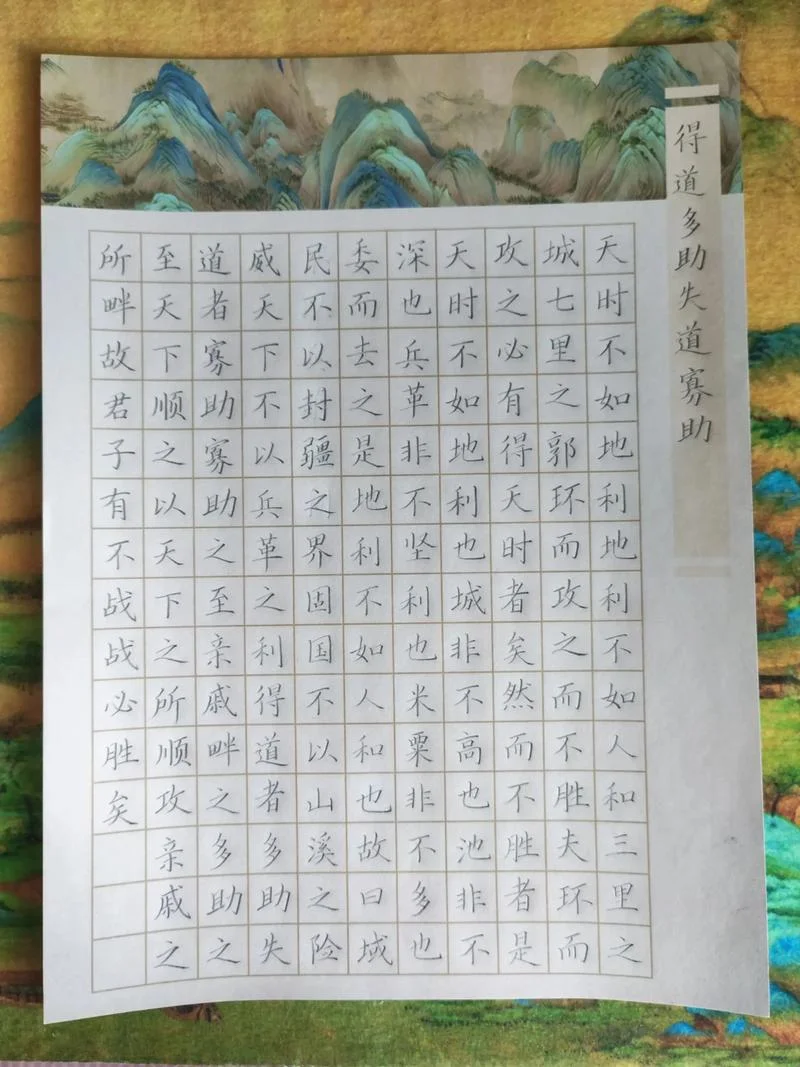 得道多助失道寡助
天时不如地利地利不如人和三里之
城七里之郭环而攻之而不胜夫环而
攻之必有得天时者矣然而不胜者是
天时不如地利也城非不高也池非不
深也兵革非不坚利也米粟非不多也
委而去之是地利不如人和也故曰域
民不以封疆之界固国不以山溪之险
威天下不以兵革之利得道者多助失
道者寡助寡助之至亲戚畔之多助之
至天下顺之以天下之所顺攻亲戚之
所畔故君子有不战战必胜矣